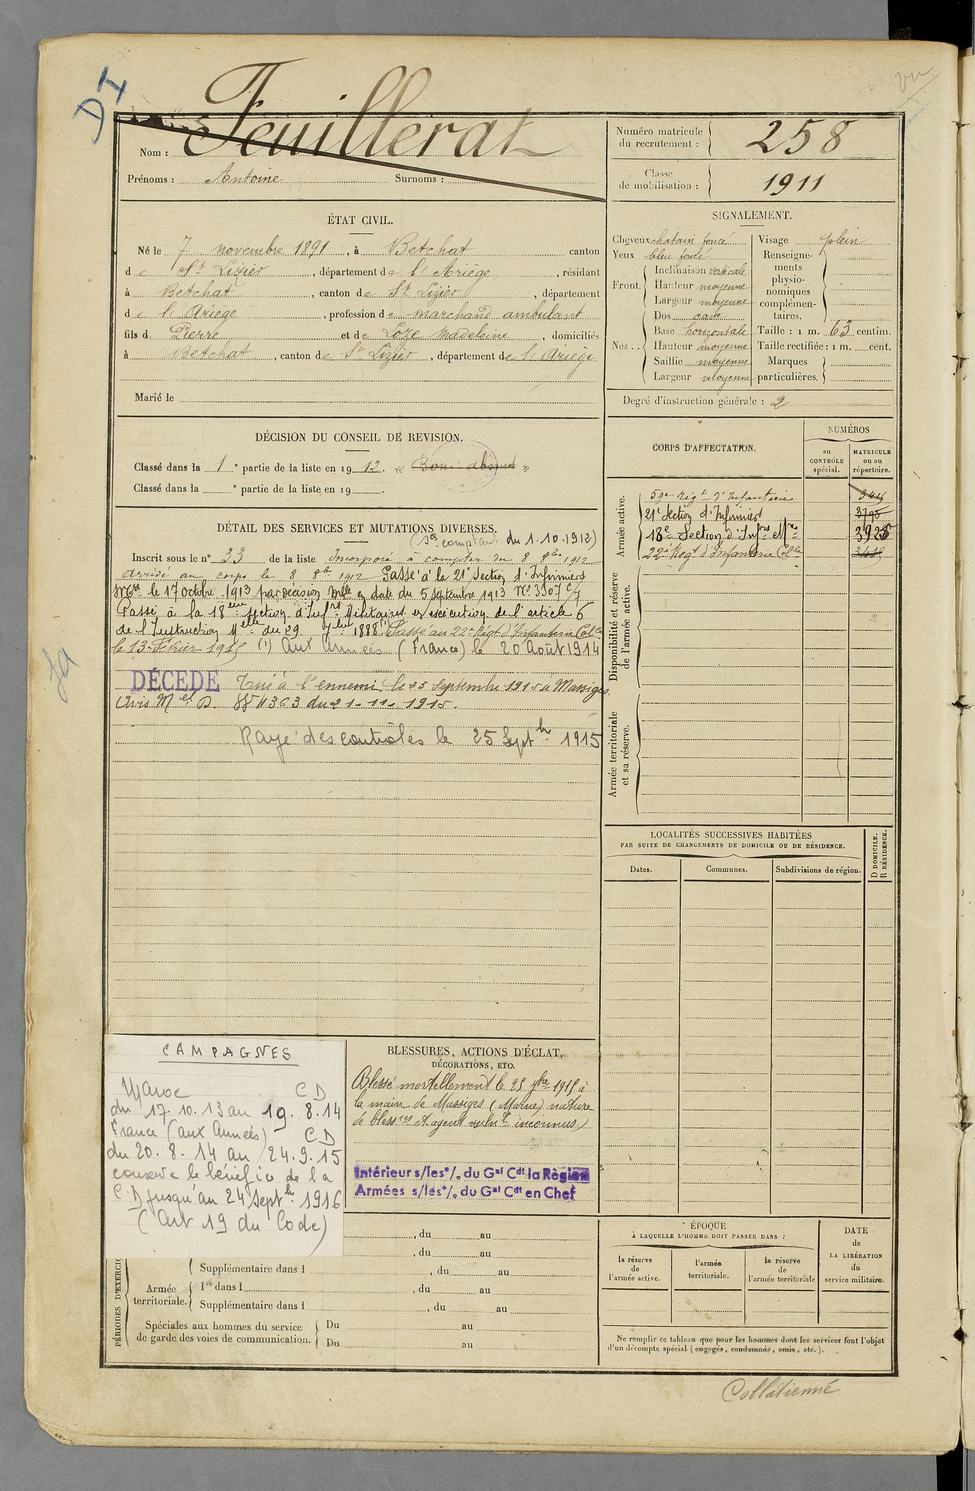 D I
Nom : Feuillerat
Prénoms : Antoine Surnoms :
Numéro matricule du recrutement : 258
Classe de mobilisation : 1911
ÉTAT CIVIL.
Né le 7 novembre 1891, à Betchat canton
de St Lizier, département de l'Ariège, résidant
à Betchat, canton de St Lizier, département
de l'Ariège, profession de marchand ambulant
fils de Pierre et de Loze Madeleine, domiciliés
à Betchat, canton de St Lizier, département de l'Ariège
Marié le
SIGNALEMENT.
Cheveux chatain foncé
Yeux bleu foncé
Front. Inclinaison verticale
Hauteur moyenne
Largeur moyenne
Nez.. Dos cave
Base horizontale
Hauteur moyenne
Saillie moyenne
Largeur moyenne
Visage plein
Renseignements physionomiques complémentaires.
Taille : 1 m. 63 centim.
Taille rectifiée : 1 m. cent.
Marques particulières.
Degré d'instruction générale : 2
DÉCISION DU CONSEIL DE REVISION.
Classé dans la 1e partie de la liste en 1912. « Bon absent »
Classé dans la e partie de la liste en 19 .
CORPS D'AFFECTATION.
NUMÉROS
au CONTRÔLE spécial.
MATRICULE ou au répertoire.
Armée active.
59e Régt d'Infanterie
21e Section d'Infirmiers 3795
18e Section d'Infrs Mres 3925
22e Regt d'Infanterie Colle
Disponibilité et réserve de l'armée active.
Armée territoriale et sa réserve.
DÉTAIL DES SERVICES ET MUTATIONS DIVERSES.
comptant du 1.10.1912)
Inscrit sous le n° 33 de la liste Incorporé à compter du 8 8bre 1912
Arrivé au corps le 8 8bre 1912 Passé à la 21e Section d'Infirmiers
Mres le 17 octobre 1913 par décision Mlle en date du 5 septembre 1913 N° 3307 c/7
Passé à la 18eme Section d'Infrs Militaires en exécution de l'article 6
de l'Instruction Melle du 29 1888 (1) Passé au 22e Régt d'Infanterie Colle
le 13 Février 1915 (1) Aux Armées (France) le 20 Août 1914
DÉCÉDÉ Tué à l'ennemi le 25 Septembre 1915 à Massiges.
Avis Mel D. 4363 du 21-11-1915.
Rayé des contrôles le 25 Septbre 1915
LOCALITÉS SUCCESSIVES HABITÉES
PAR SUITE DE CHANGEMENTS DE DOMICILE OU DE RÉSIDENCE.
Dates.
Communes.
Subdivisions de région.
D DOMICILE.
R RÉSIDENCE.
CAMPAGNES
Maroc CD
du 17.10.13 au 19.8.14
France (aux Armées) CD
du 20.8.14 au 24.9.15
conserve le bénéfice de la
C.D jusqu'au 24 Septbre 1916
(Art 19 du Code)
BLESSURES, ACTIONS D'ÉCLAT,
DÉCORATIONS, ETC.
Blessé mortellement le 25 7bre 1915 à
la main de Massiges (Marne) nature
de blessres et agent vulnt inconnus
Intérieur s/les o/. du Gal Cdt la Région
Armées s/les o/. du Gal Cdt en Chef
PÉRIODES D'EXERCIC
, du au
, du au
Supplémentaire dans l , du au
Armée territoriale.
1re dans l , du au
Supplémentaire dans l , du au
Spéciales aux hommes du service
de garde des voies de communication.
Du au
Du au
ÉPOQUE
À LAQUELLE L'HOMME DOIT PASSER DANS :
la réserve de l'armée active.
l'armée territoriale.
la réserve de l'armée territoriale
DATE
de
LA LIBÉRATION
du
service militaire.
Ne remplir ce tableau que pour les hommes dont les services font l'objet
d'un décompte spécial (engagés, condamnés, omis, etc.).
Collationné